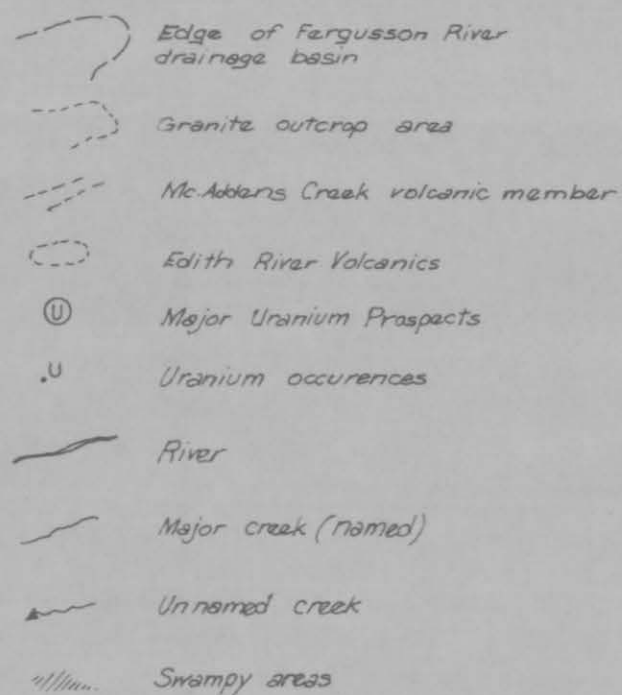 Edge of Fergusson River
drainage basin
Granite outcrop area
Mc.Addens Creek volcanic member
Edith River Volcanics
U
Major Uranium Prospects
.U
Uranium occurences
River
Major creek (named)
Unnamed creek
Swampy areas